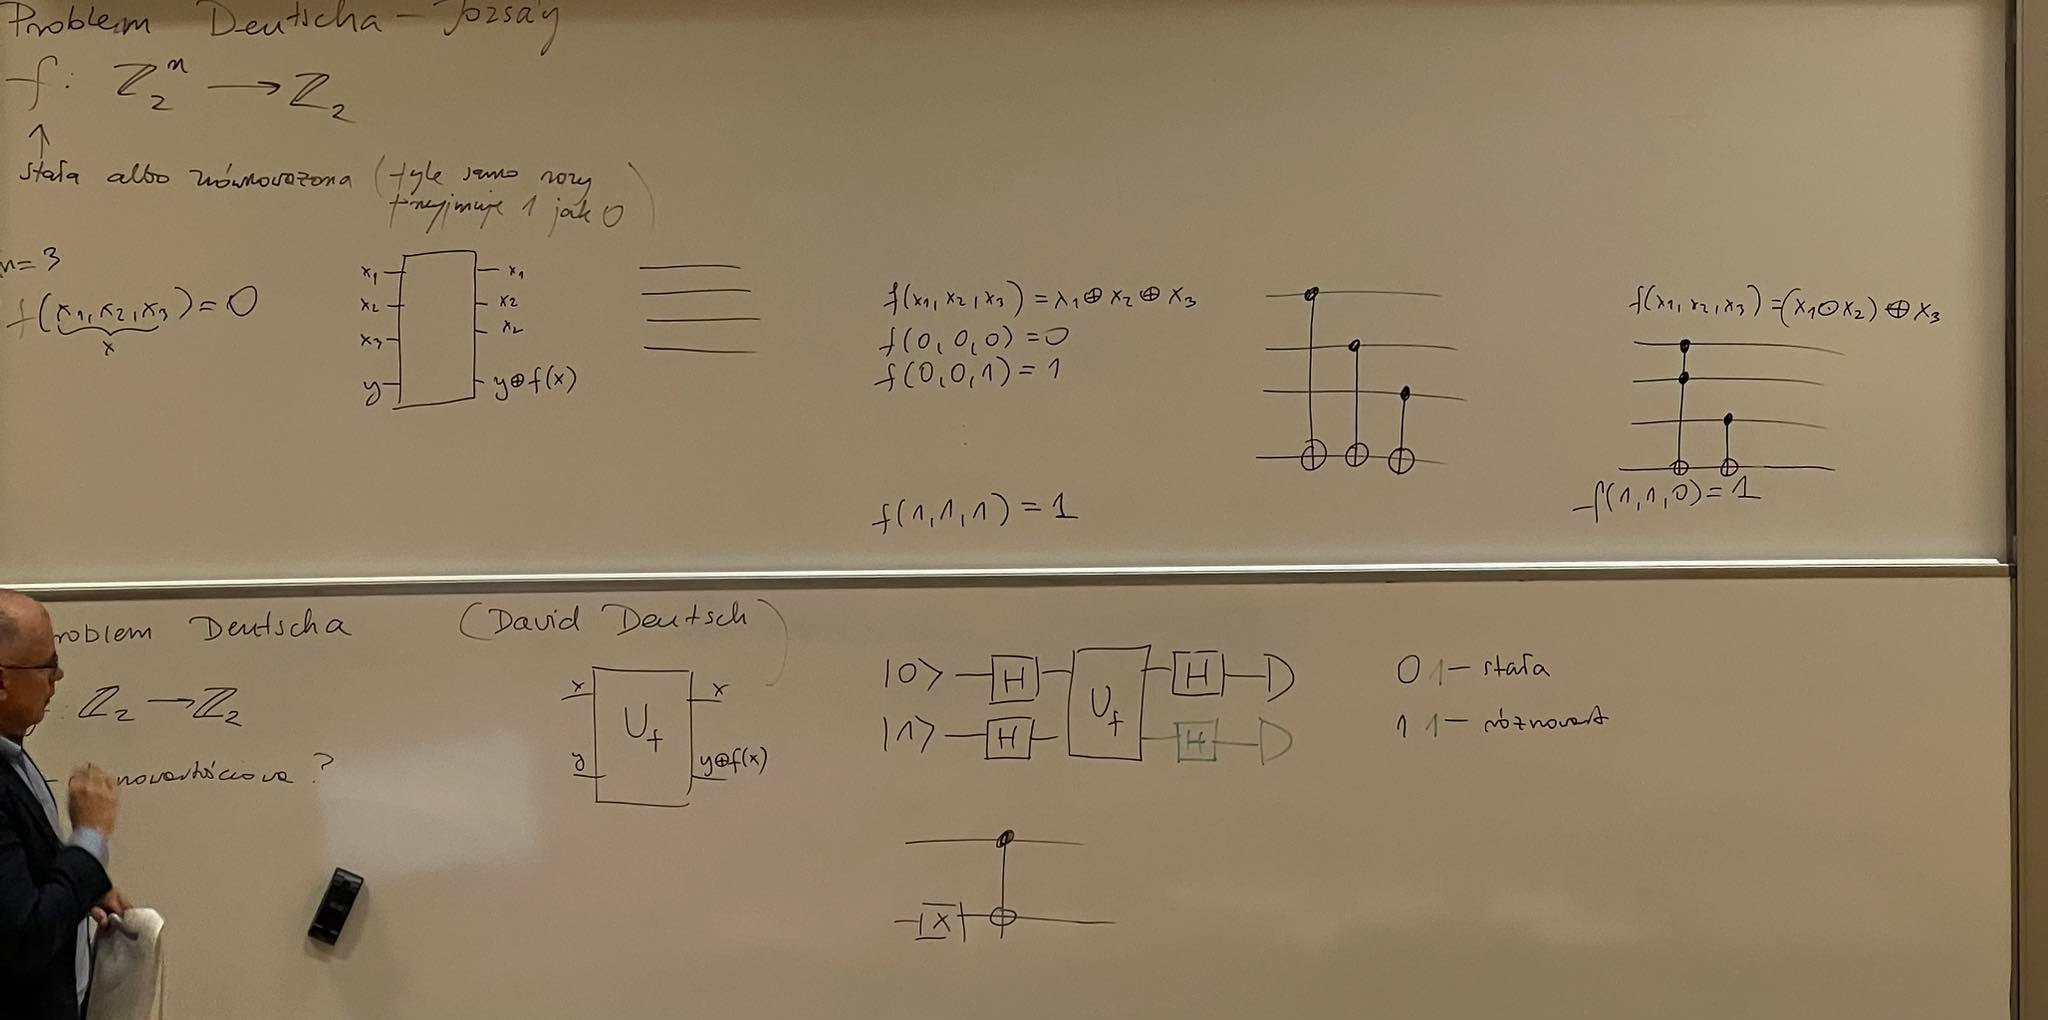 Problem Deutscha - Jozsa'y
f: ℤ₂ⁿ → ℤ₂
↑
stała albo zrównoważona (tyle samo razy
przyjmuje 1 jak 0)
n=3
f(x₁, x₂, x₃) = 0
x
x₁ x₁
x₂ x₂
x₃ x₂
y y⊕f(x)
f(x₁, x₂, x₃) = x₁ ⊕ x₂ ⊕ x₃
f(0, 0, 0) = 0
f(0, 0, 1) = 1
f(1, 1, 1) = 1
f(x₁, x₂, x₃) = (x₁ ⊙ x₂) ⊕ x₃
f(1, 1, 0) = 1
roblem Deutscha (David Deutsch)
: ℤ₂ → ℤ₂
nowartościowa ?
x x
U_f
y y⊕f(x)
|0⟩ H U_f H
|1⟩ H H
0 1 — stała
1 1 — różnowart
X